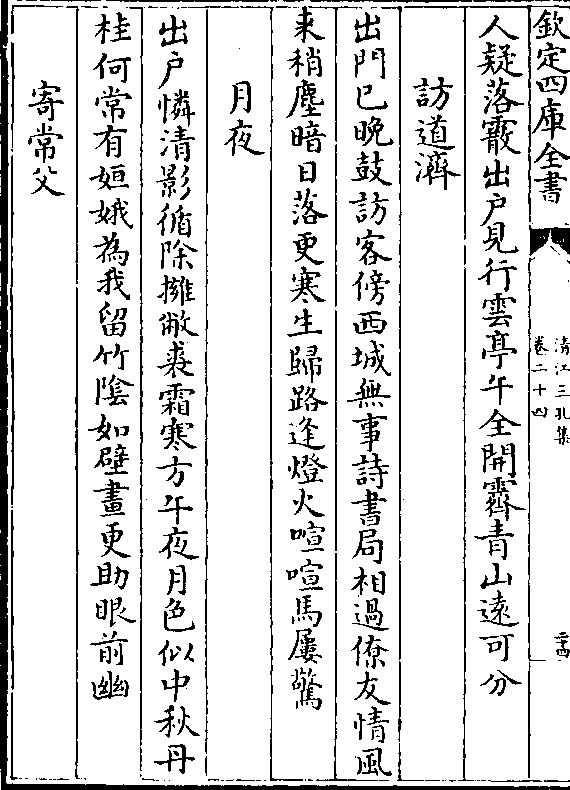 欽定四庫全書
清江三孔集
卷二十四
二十四
人疑落霰出戶見行雲亭午全開霽青山遠可分
訪道濟
出門已晚鼓訪客傍西城無事詩書局相過僚友情風
来稍塵暗日落更寒生歸路逢燈火喧喧馬屢驚
月夜
出戶憐清影循除擁敝裘霜寒方午夜月色似中秋丹
桂何常有姮娥為我留竹陰如壁畫更助眼前幽
寄常父